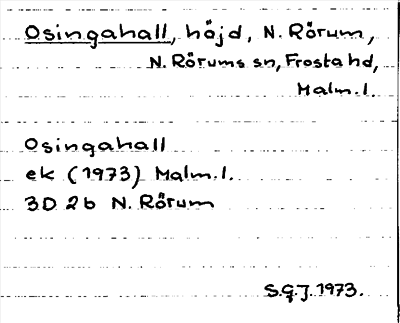 Osingahall, höjd, N. Rörum,
N. Rörums sn, Frosta hd,
Malm. l.
Osingahall
ek (1973) Malm. l.
3D 2b N. Rörum
S.G.J. 1973.